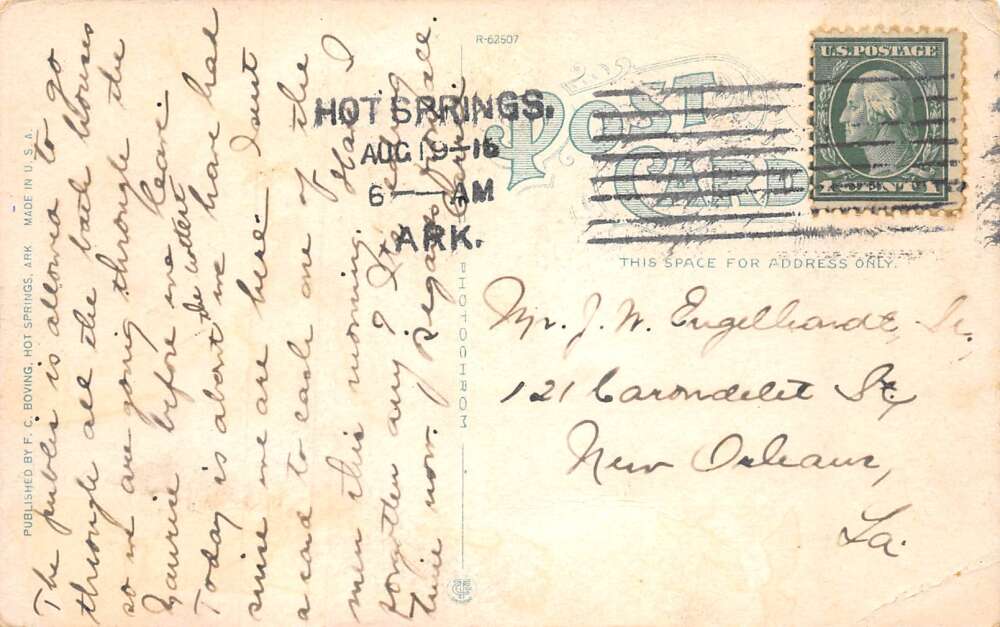 R-62507
POST CARD
THIS SPACE FOR ADDRESS ONLY.
HOT SPRINGS,
AUG 19-16
6—AM
ARK.
U.S. POSTAGE
1 CENT 1
Mr. J. W. Engelhardt, Sr.,
121 Carondelet St,
New Orleans,
La.
The public is allowed to go
through all the bath houses
so we are going through the
Maurice before we leave.
Today is about the hottest we have had
since we are here. I sent
a card to each one of the
men this morning. Have I
forgotten any? It's
time now. Regards to all.
Carrie
PUBLISHED BY F. C. BOVING, HOT SPRINGS, ARK. MADE IN U. S. A.
PHOTOCHROM